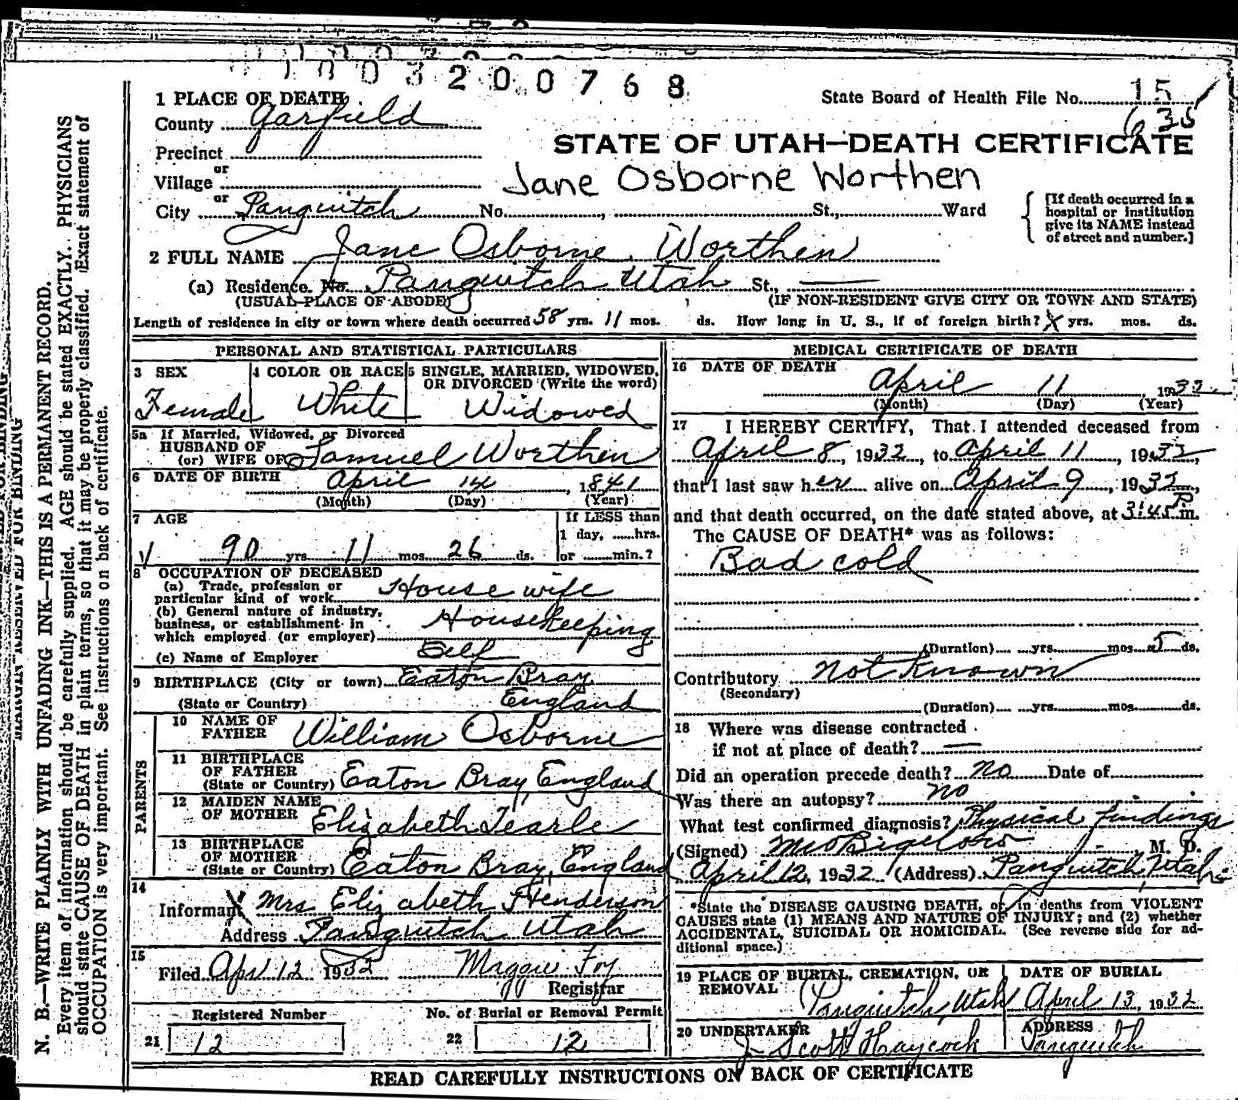 1003200768
1 PLACE OF DEATH
State Board of Health File No. 15
635
County Garfield
STATE OF UTAH—DEATH CERTIFICATE
Precinct
or
Village
Jane Osborne Worthen
or
City Panguitch No. St., Ward
[If death occurred in a
hospital or institution
give its NAME instead
of street and number.]
2 FULL NAME Jane Osborne Worthen
(a) Residence. No. Panguitch Utah St.,
(USUAL PLACE OF ABODE) (IF NON-RESIDENT GIVE CITY OR TOWN AND STATE)
Length of residence in city or town where death occurred 58 yrs. 11 mos. ds. How long in U. S., if of foreign birth? X yrs. mos. ds.
PERSONAL AND STATISTICAL PARTICULARS
3 SEX 4 COLOR OR RACE 5 SINGLE, MARRIED, WIDOWED,
OR DIVORCED (Write the word)
Female White Widowed
5a If Married, Widowed, or Divorced
HUSBAND OF
(or) WIFE OF Samuel Worthen
6 DATE OF BIRTH April 14, 1841
(Month) (Day) (Year)
7 AGE If LESS than
1 day, ......hrs.
90 yrs 11 mos. 26 ds. or ......min.?
8 OCCUPATION OF DECEASED
(a) Trade, profession or
particular kind of work Housewife
(b) General nature of industry,
business, or establishment in
which employed (or employer) Housekeeping
(c) Name of Employer Self
9 BIRTHPLACE (City or town) Eaton Bray
(State or Country) England
PARENTS
10 NAME OF
FATHER William Osborne
11 BIRTHPLACE
OF FATHER
(State or Country) Eaton Bray, England
12 MAIDEN NAME
OF MOTHER Elizabeth Tearle
13 BIRTHPLACE
OF MOTHER
(State or Country) Eaton Bray, England
14
Informant Mrs. Elizabeth Henderson
Address Panguitch Utah
15
Filed Apr 12 1932 Maggie Foy
Registrar
Registered Number No. of Burial or Removal Permit
21 12 22 12
MEDICAL CERTIFICATE OF DEATH
16 DATE OF DEATH
April 11 1932
(Month) (Day) (Year)
17 I HEREBY CERTIFY, That I attended deceased from
April 8, 1932, to April 11, 1932,
that I last saw her alive on April 9, 1932,
and that death occurred, on the date stated above, at 3:45 P m.
The CAUSE OF DEATH* was as follows:
Bad cold
(Duration) yrs. mos. 5 ds.
Contributory Not Known
(Secondary)
(Duration) yrs. mos. ds.
18 Where was disease contracted
if not at place of death?
Did an operation precede death? No Date of
Was there an autopsy? No
What test confirmed diagnosis? Physical findings
(Signed) M. D.
April 12, 1932 (Address) Panguitch, Utah
*State the DISEASE CAUSING DEATH, or in deaths from VIOLENT
CAUSES state (1) MEANS AND NATURE OF INJURY; and (2) whether
ACCIDENTAL, SUICIDAL OR HOMICIDAL. (See reverse side for ad-
ditional space.)
19 PLACE OF BURIAL, CREMATION, OR
REMOVAL
Panguitch, Utah
DATE OF BURIAL
April 13, 1932
20 UNDERTAKER
J Scott Haycock
ADDRESS
Panguitch
READ CAREFULLY INSTRUCTIONS ON BACK OF CERTIFICATE
MARGIN RESERVED FOR BINDING
N. B.—WRITE PLAINLY WITH UNFADING INK—THIS IS A PERMANENT RECORD.
Every item of information should be carefully supplied. AGE should be stated EXACTLY. PHYSICIANS
should state CAUSE OF DEATH in plain terms, so that it may be properly classified. Exact statement of
OCCUPATION is very important. See instructions on back of certificate.